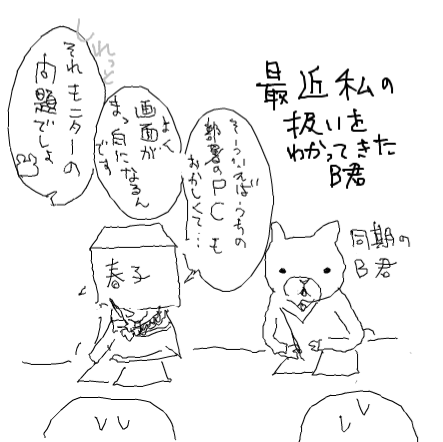 最近私の
扱いを
わかってきた
B君
同期の
B君
そういえばうちの
部署のPCも
おかしくて…
よく
画面が
まっ白になるん
です
しれっと
それモニターの
問題でしょ
春子